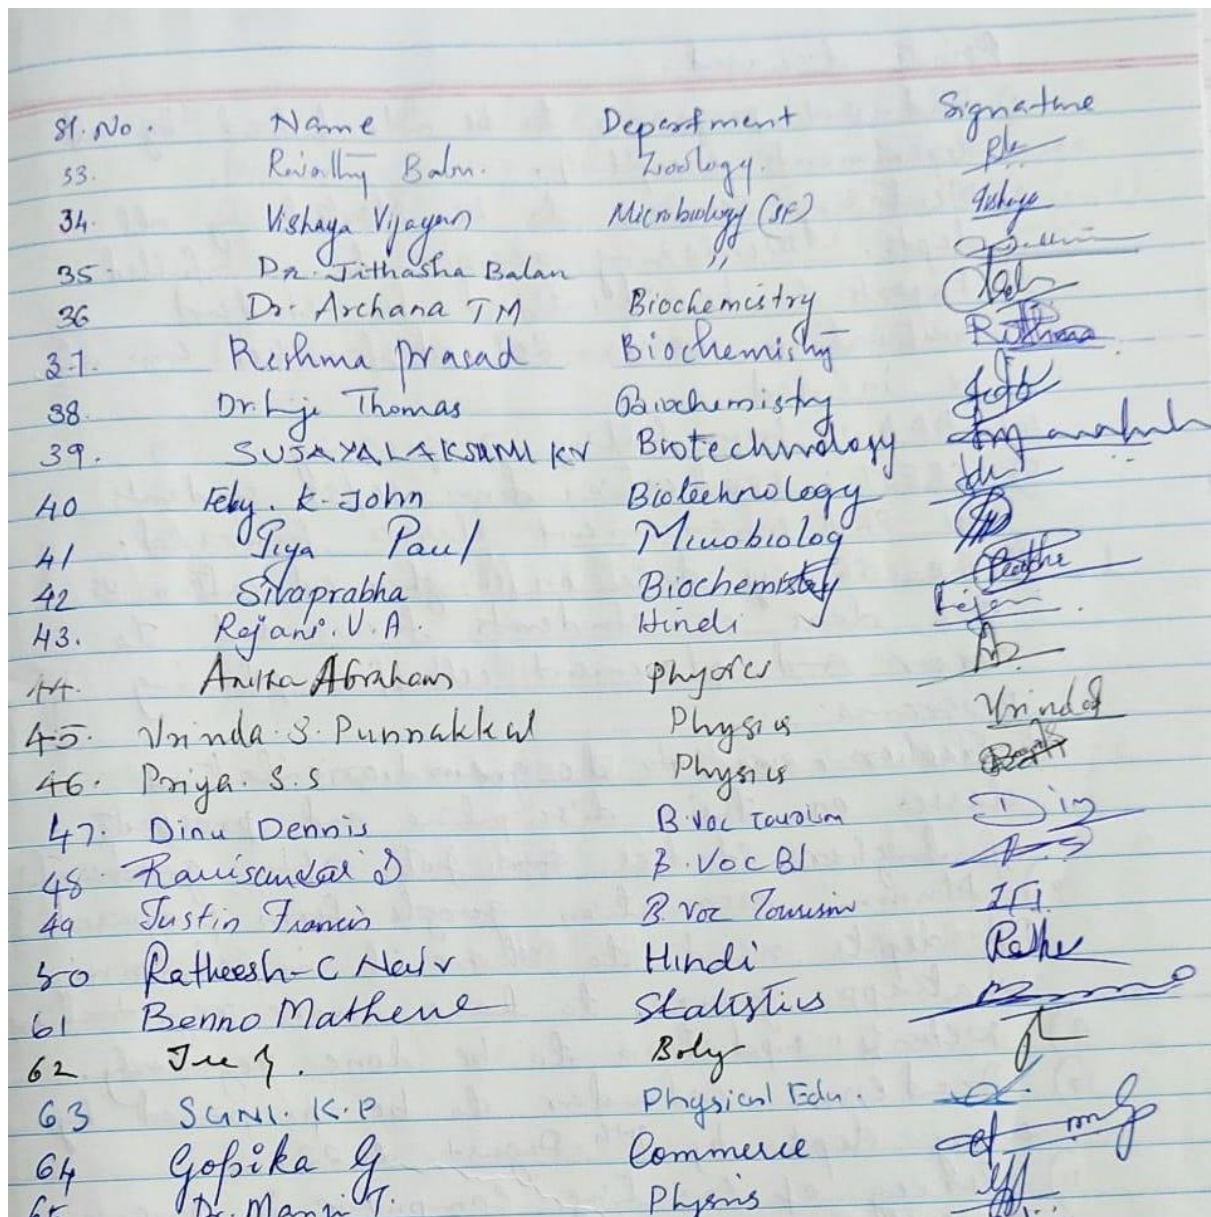 Sl. No. Name Department Signature
33. Balan. Zoology.
34. Vishaya Vijayan Microbiology (SF) Vishaya
35. Dr. Jithasha Balan "
36 Dr. Archana TM Biochemistry
37. Reshma Prasad Biochemistry
38. Dr. Liji Thomas Biochemistry
39. SUJAYALAKSHMI KV Biotechnology
40 Feby. K. John Biotechnology
41 Paul Microbiolog
42 Sivaprabha Biochemistry
43. Rejani. V. A. Hindi Rejani
44. Anitha Abraham Physics
45. Vrinda. S. Punnakkal Physics Vrinda
46. Priya. S. S Physics
47. Dinu Dennis B. Voc Tourism
48. B. Voc
49 Justin Francis B. Voc Tourism
50 Ratheesh-C Nair Hindi
61 Benno Mathew Statistics
62
63 SUNI. K. P Physical Edn.
64 Gopika G Commerce
65 Dr. Physics